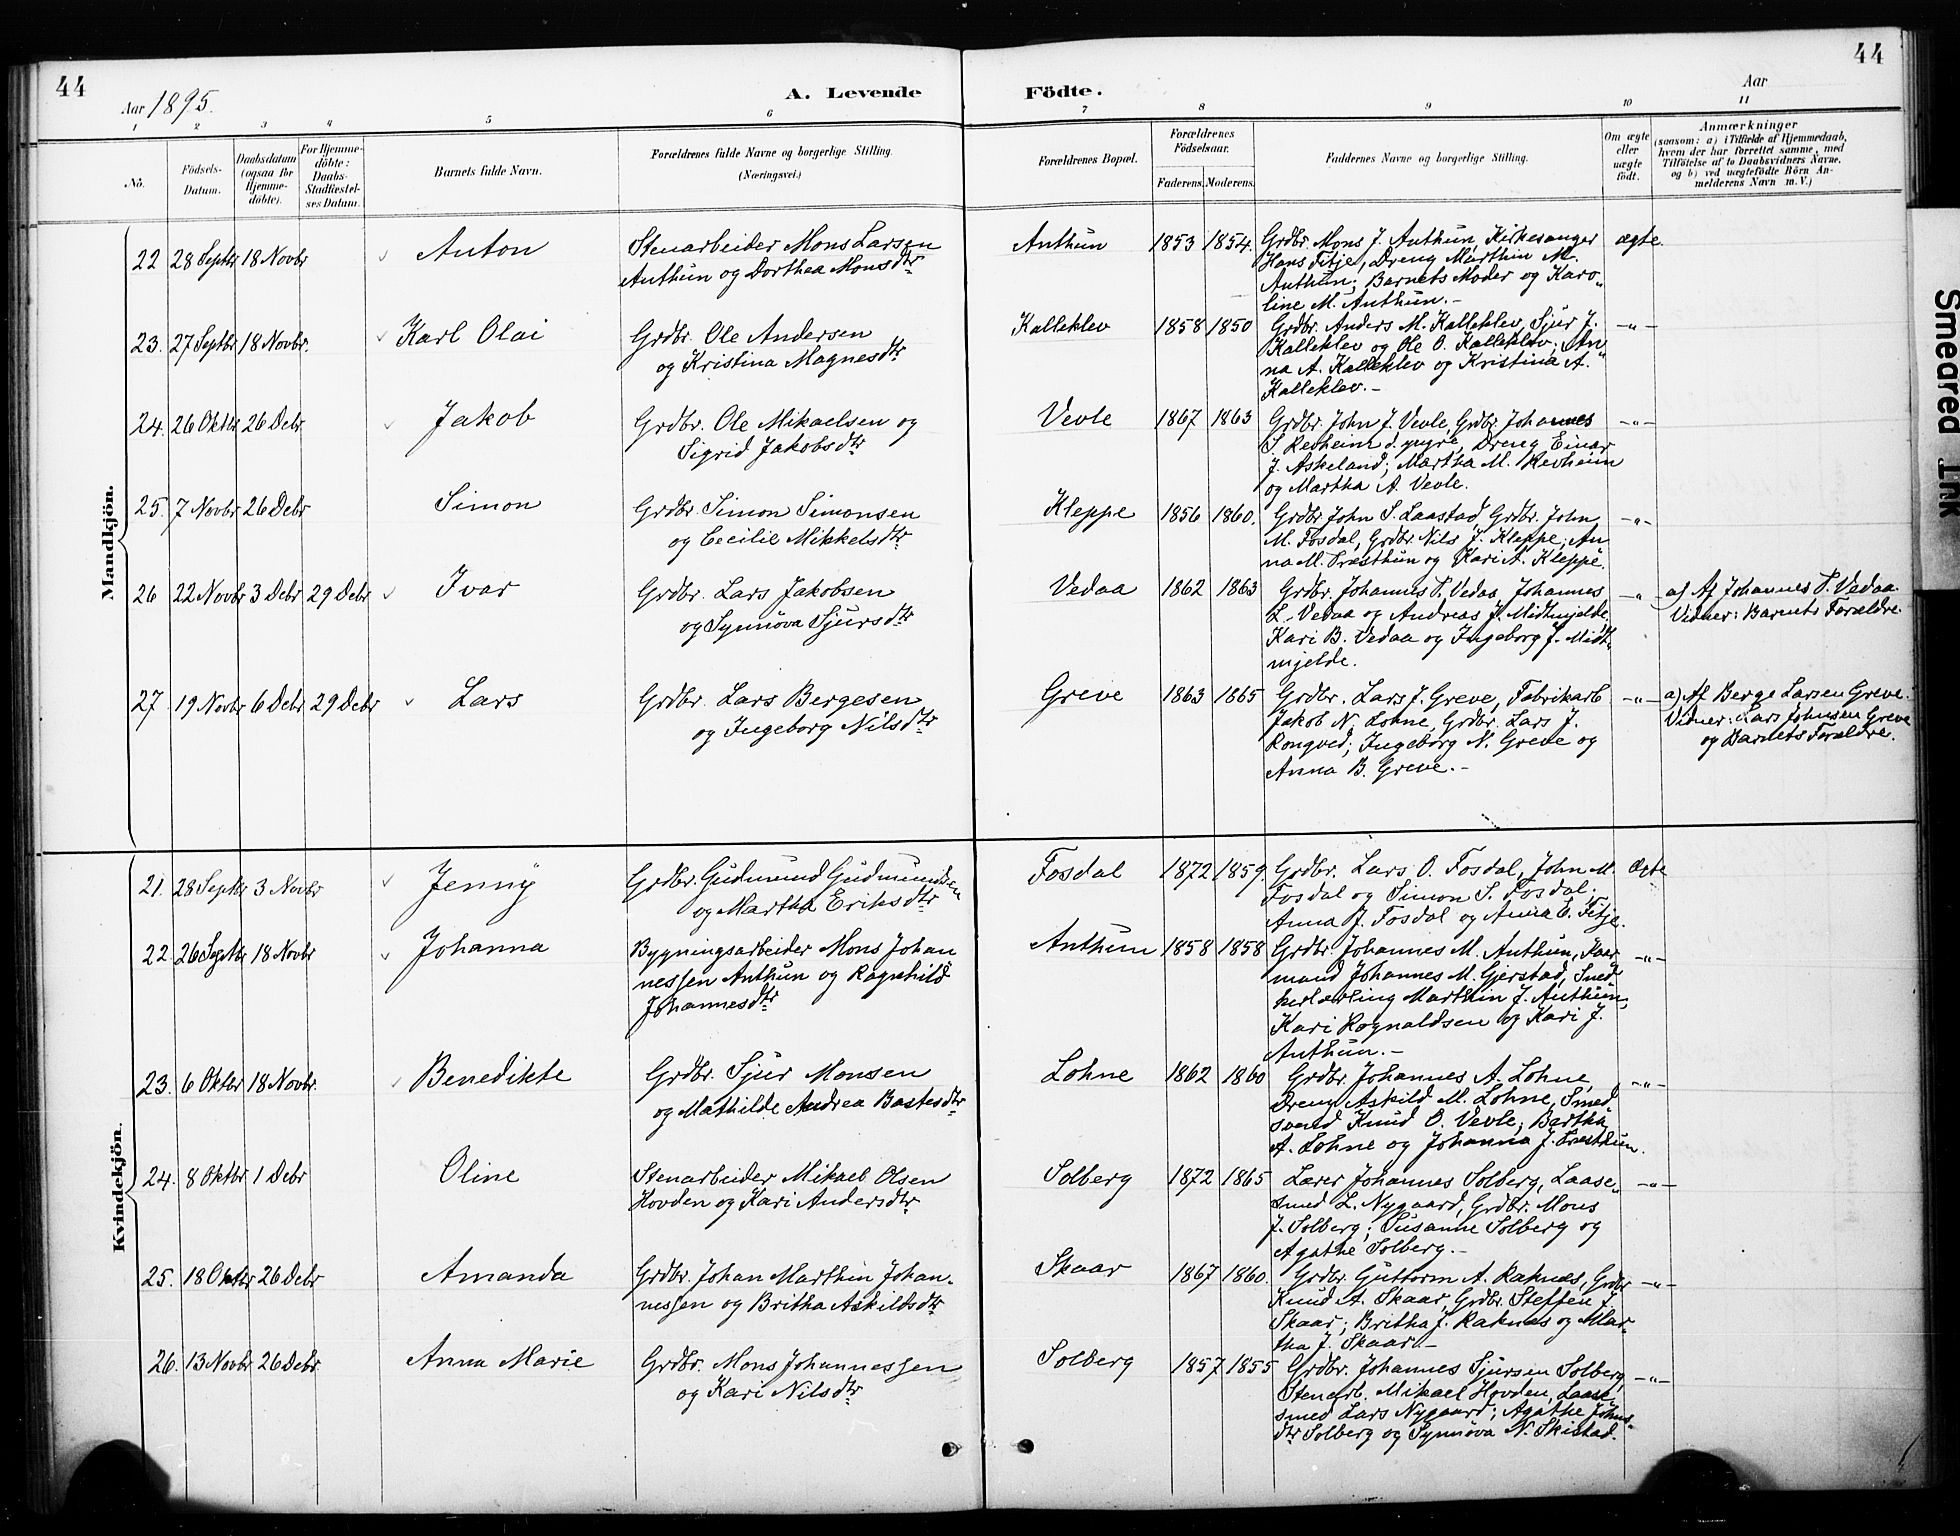 44
44
Aar 1895.
A. Levende Födte.
Aar
1 2 3 4 5 6 7 8 9 10 11
No.
Födsels-Datum.
Daabsdatum (ogsaa for Hjemme-döbte).
For Hjemme-döbte: Daabs-Stadfæstel-ses Datum.
Barnets fulde Navn.
Forældrenes fulde Navne og borgerlige Stilling.
(Næringsvei.)
Forældrenes Bopæl.
Forældrenes Födselsaar.
Faderens. Moderens.
Faddernes Navne og borgerlige Stilling.
Om ægte eller uægte födt.
Anmærkninger
(saasom: a) i Tilfælde af Hjemmedaab,
hvem der har forrettet samme, med
Tilföielse af to Daabsvidners Navne.
og b) ved uægtefödte Börn An-
melderens Navn m. V.)
Mandkjön.
22 28 Septbr 18 Novbr Anton
Stenarbeider Mons Larsen
Anthun og Dorthea Monsdtr
Anthun 1853 1854.
Grdbr. Mons J. Anthun, Kirkesanger
Hans Fitje, Dreng Marthin M.
Anthun; Barnets Moder og Karo„
line M. Anthun.-
ægte
23. 27 Septbr 18 Novbr. Karl Olai
Grdbr. Ole Andersen
og Kristina Magnesdtr
Kalleklev 1858 1850
Grdbr. Anders M. Kalleklev, Sjur J.
Kalleklev og Ole O. Kalleklev; An„
na A. Kalleklev og Kristina A.
Kalleklev.-
-„-
24. 26 Oktbr 26 Debr. Jakob
Grdbr. Ole Mikaelsen og
Sigrid Jakobsdtr
Vevle 1867 1863
Grdbr. John J. Vevle, Grdbr. Johannes
S. Revheim d. yngre, Dreng Einar
J. Askeland; Martha M. Revheim
og Martha A. Vevle.
-„-
25. 7 Novbr 26 Debr Simon
Grdbr. Simon Simonsen
og Cecilie Mikkelsdtr
Kleppe 1856 1860.
Grdbr John S. Laastad, Grdbr. John
M. Fosdal, Grdbr. Nils J. Kleppe; An„
na M. Træsthun og Kari A. Kleppe.
-„-
26 22 Novbr 3 Debr 29 Debr Ivar
Grdbr. Lars Jakobsen
og Synnöva Sjursdtr
Vedaa 1862 1863
Grdbr. Johannes P. Vedaa, Johannes
L. Vedaa og Andreas J. Midtmjelde
Kari B. Vedaa og Ingeborg J. Midt„
mjelde.
-„-
a) Af Johannes P. Vedaa.
Vidner: Barnets Forældre
27. 19 Novbr 6 Debr 29 Debr Lars
Grdbr. Lars Bergesen
og Ingeborg Nilsdtr
Greve 1863 1865
Grdbr. Lars J. Greve, Fabrikarb
Jakob N. Lohne, Grdbr. Lars J.
Rongved; Ingeborg N. Greve og
Anna B. Greve.-
-„-
a) Af Berge Larsen Greve.
Vidner: Lars Johnsen Greve
og Barnets Forældre.
Kvindekjön.
21. 28 Septbr 3 Novbr Jenny
Grdbr. Gudmund Gudmundsen
og Martha Eriksdtr
Fosdal 1872 1859.
Grdbr. Lars O. Fosdal, John M.
Fosdal og Simon S. Fosdal;
Anna J. Fosdal og Anna E. Fitje.
Ægte
22. 26 Septbr 18 Novbr Johanna
Bygningsarbeider Mons Johan
nessen Anthun og Ragnhild
Johannesdtr
Anthun 1858 1858
Grdbr. Johannes M. Anthun, Kaar
mand Johannes M. Gjerstad, Sned
kerlærling Marthin J. Anthun,
Kari Rognaldsen og Kari J.
Anthun.-
-„-
23. 6 Oktbr 18 Novbr. Benedikte
Grdbr. Sjur Monsen
og Mathilde Andrea Bastesdtr
Lohne 1862 1860
Grdbr. Johannes A. Lohne,
Dreng Askild M. Lohne, Smed
svend Knud O. Vevle; Bertha
A. Lohne og Johanna J. Træsthun.
-„-
24. 8 Oktbr 1 Debr Oline
Stenarbeider Mikael Olsen
Hovden og Kari Andersdtr
Solberg 1872 1865
Lærer Johannes Solberg, Laase„
smed L. Nygaard, Grdbr. Mons
J. Solberg; Susanne Solberg og
Agathe Solberg.-
-„-
25. 18 Oktbr 26 Debr Amanda
Grdbr. Johan Marthin Johan-
nessen og Britha Askildsdtr
Skaar 1867 1860.
Grdbr. Guttorm A. Raknes, Grdbr
Knud A. Skaar, Grdbr. Steffen J.
Skaar; Britha J. Raknes og Mar-
tha J. Skaar.-
-„-
26. 13 Novbr 26 Debr. Anna Marie
Grdbr. Mons Johannessen
og Kari Nilsdtr
Solberg 1857 1855
Grdbr. Johannes Sjursen Solberg,
Stenarb. Mikael Hovden, Laase
smed Lars Nygaard; Agathe Johns-
dtr Solberg og Synnöva N. Skistad.
-„-
Smeared Ink